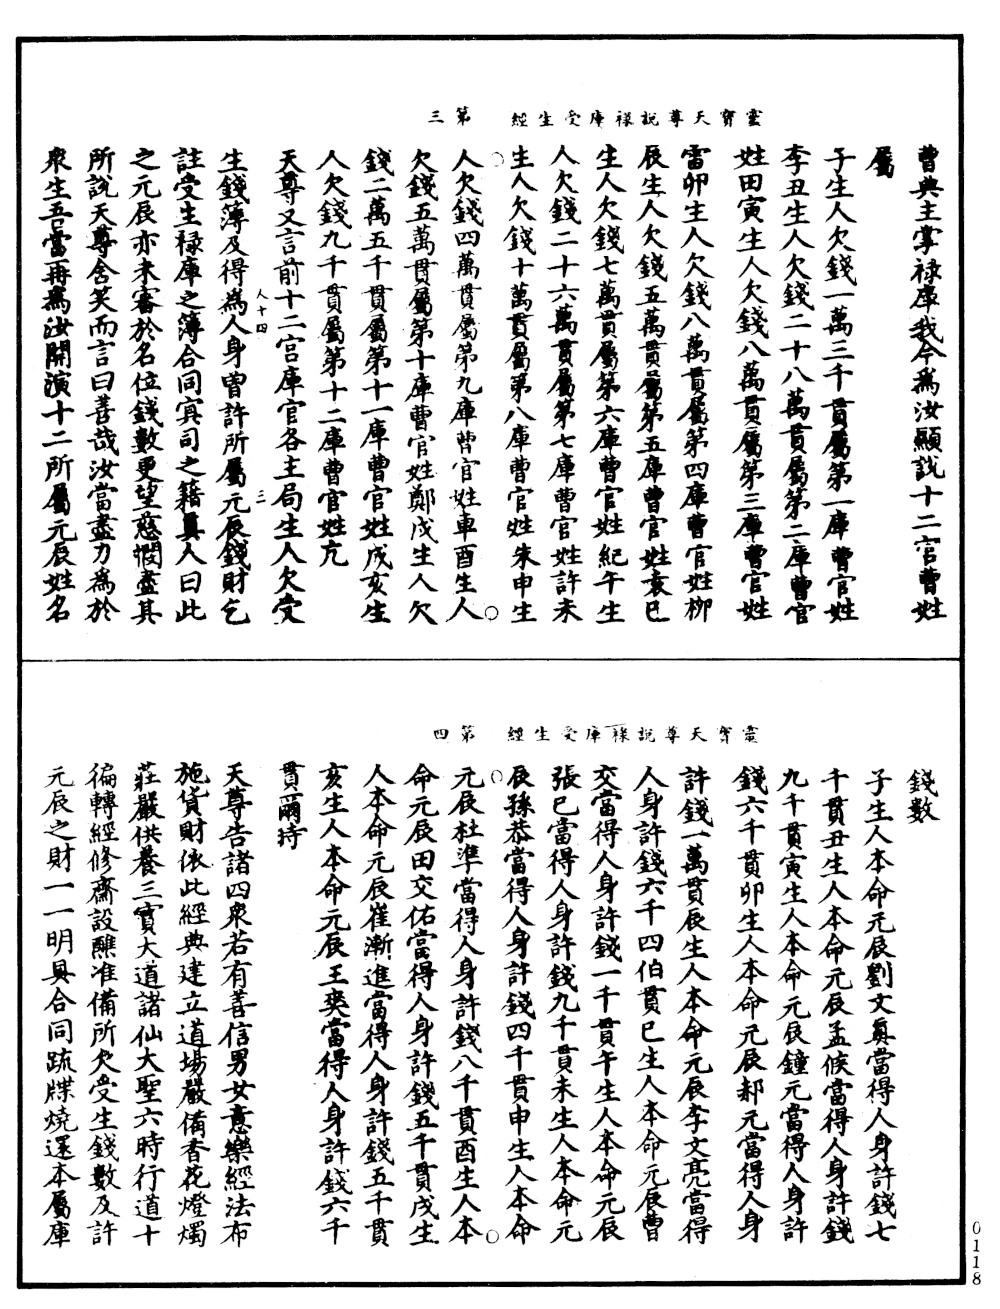 靈寶天尊說祿庫受生經　第三
曹典主掌禄庫我今為汝顯說十二官曹姓
屬
子生人欠錢一萬三千貫屬第一庫曹官姓
李丑生人欠錢二十八萬貫屬第二庫曹官
姓田寅生人欠錢八萬貫屬第三庫曹官姓
雷卯生人欠錢八萬貫屬第四庫曹官姓柳
辰生人欠錢五萬貫屬第五庫曹官姓袁巳
生人欠錢七萬貫屬第六庫曹官姓紀午生
人欠錢二十六萬貫屬第七庫曹官姓許未
生人欠錢十萬貫屬第八庫曹官姓朱申生
人欠錢四萬貫屬第九庫曹官姓車酉生人
欠錢五萬貫屬第十庫曹官姓鄭戌生人欠
錢二萬五千貫屬第十一庫曹官姓成亥生
人欠錢九千貫屬第十二庫曹官姓亢
天尊又言前十二宫庫官各主局生人欠受
人十四　三
生錢薄及得為人身曾許所屬元辰錢財乞
註受生禄庫之薄合同冥司之籍真人曰此
之元辰亦未審於名位錢數更望慈憫盡其
所說天尊含笑而言曰善哉汝當盡力為於
衆生吾當再為汝開演十二所屬元辰姓名
靈寶天尊說祿庫受生經　第四
錢数
子生人本命元辰劉文真當得人身許錢七
千貫丑生人本命元辰孟候當得人身許錢
九千貫寅生人本命元辰鐘元當得人身許
錢六千貫卯生人本命元辰郝元當得人身
許錢一萬貫辰生人本命元辰李文亮當得
人身許錢六千四伯貫巳生人本命元辰曹
交當得人身許錢一千貫午生人本命元辰
張巳當得人身許錢九千貫未生人本命元
辰孫恭當得人身許錢四千貫申生人本命
元辰杜準當得人身許錢八千貫酉生人本
命元辰田交佑當得人身許錢五千貫戌生
人本命元辰崔漸進當得人身許錢五千貫
亥生人本命元辰王爽當得人身許錢六千
貫爾持
天尊告諸四衆若有善信男女意樂經法布
施貨財依此經典建立道場嚴備香花燈燭
莊嚴供養三寶大道諸仙大聖六時行道十
徧轉經修齋設醮准備所欠受生錢數及許
元辰之財一一明具合同疏牒燒還本屬庫
0118